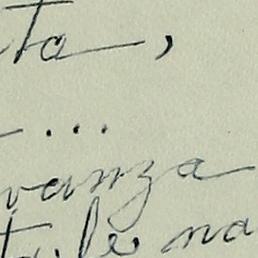 ta,
...
vanza
ta. le na